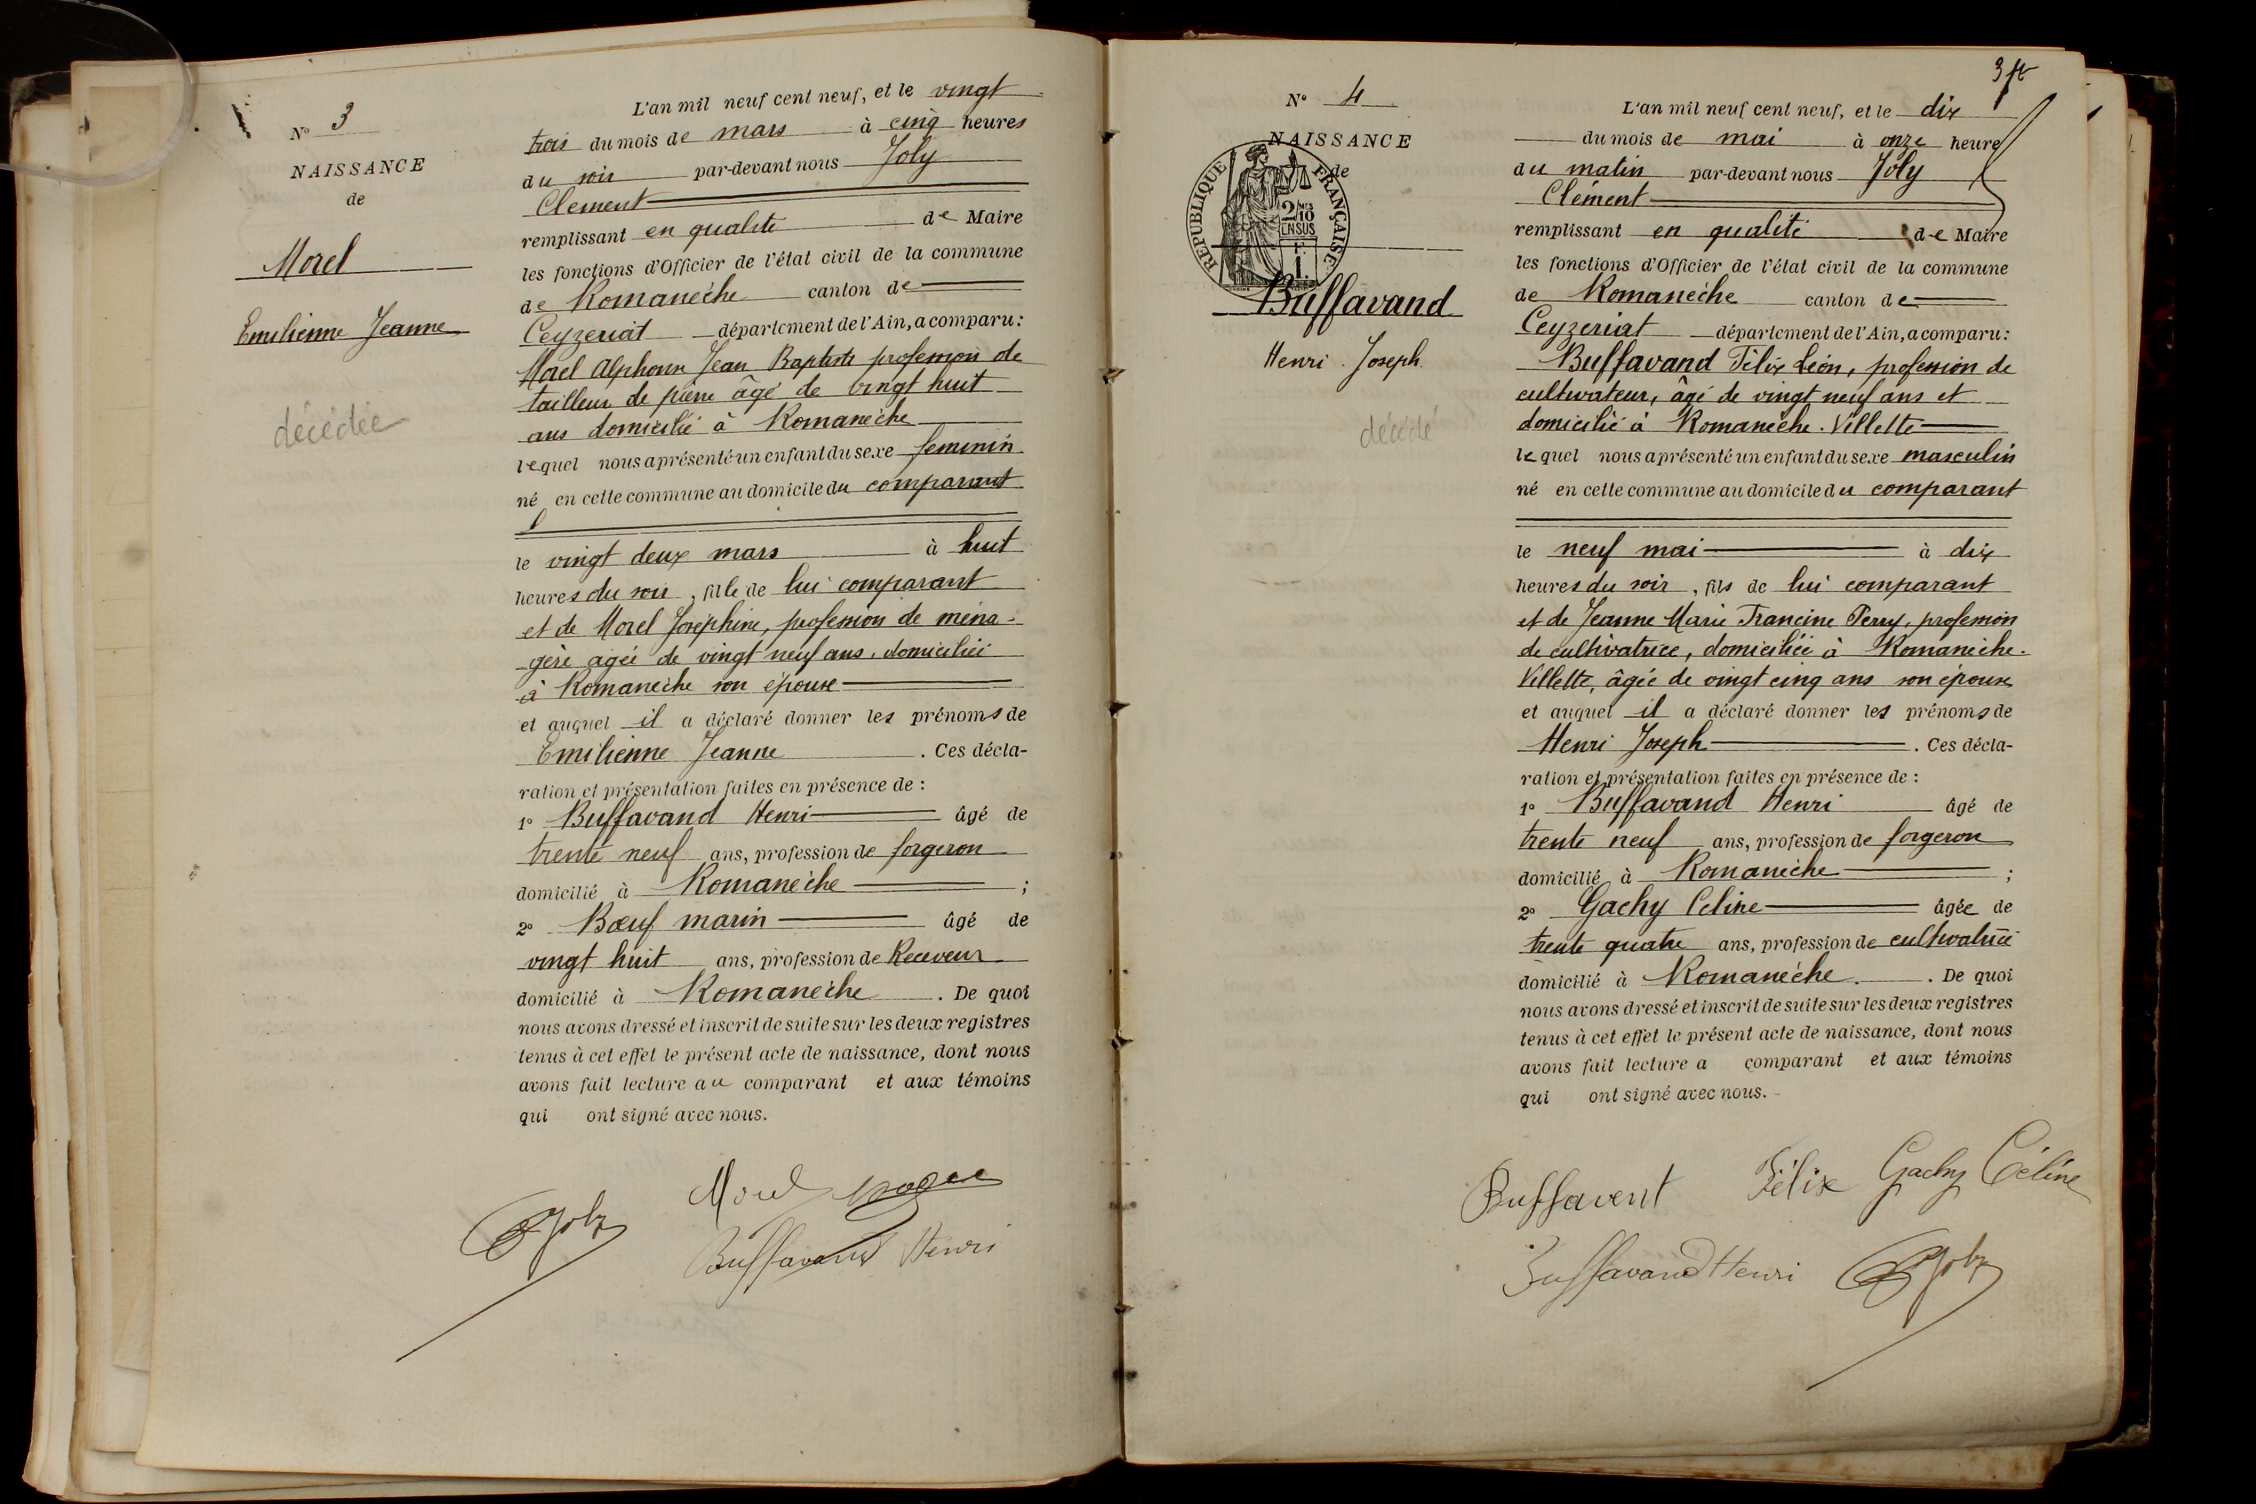 N° 3
NAISSANCE
de
Morel
Emilienne Jeanne
décédée
L'an mil neuf cent neuf, et le vingt
trois du mois de mars à cinq heures
du soir par-devant nous Joly
Clément
remplissant en qualité de Maire
les fonctions d'Officier de l'état civil de la commune
de Romanèche canton de
Ceyzeriat département de l'Ain, a comparu :
Morel Alphonse Jean Baptiste profession de
tailleur de pierre âgé de vingt huit
ans domicilié à Romanèche
lequel nous a présenté un enfant du sexe feminin
né en cette commune au domicile du comparant
le vingt deux mars à huit
heures du soir, fille de lui comparant
et de Morel Joséphine, profession de ména-
gère agée de vingt neuf ans, domiciliée
à Romanèche son épouse
et auquel il a déclaré donner les prénoms de
Emilienne Jeanne . Ces décla-
ration et présentation faites en présence de :
1° Buffavand Henri âgé de
trente neuf ans, profession de forgeron
domicilié à Romanèche ;
2° Bœuf marin âgé de
vingt huit ans, profession de Receveur
domicilié à Romanèche . De quoi
nous avons dressé et inscrit de suite sur les deux registres
tenus à cet effet le présent acte de naissance, dont nous
avons fait lecture au comparant et aux témoins
qui ont signé avec nous.
Morel
Joly
Buffavand Henri
3
N° 4
NAISSANCE
de
RÉPUBLIQUE FRANÇAISE
2/10
EN SUS
1
Buffavand
Henri Joseph
décédé
L'an mil neuf cent neuf, et le dix
du mois de mai à onze heure
du matin par-devant nous Joly
Clément
remplissant en qualité de Maire
les fonctions d'Officier de l'état civil de la commune
de Romanèche canton de
Ceyzeriat département de l'Ain, a comparu :
Buffavand Félix Léon, profession de
cultivateur, âgé de vingt neuf ans et
domicilié à Romanèche. Villette
lequel nous a présenté un enfant du sexe masculin
né en cette commune au domicile du comparant
le neuf mai à dix
heures du soir, fils de lui comparant
et de Jeanne Marie Francine Perry, profession
de cultivatrice, domiciliée à Romanèche.
Villette, âgée de vingt cinq ans son épouse
et auquel il a déclaré donner les prénoms de
Henri Joseph . Ces décla-
ration et présentation faites en présence de :
1° Buffavand Henri âgé de
trente neuf ans, profession de forgeron
domicilié à Romanèche ;
2° Gachy Celine âgée de
trente quatre ans, profession de cultivatrice
domicilié à Romanèche. . De quoi
nous avons dressé et inscrit de suite sur les deux registres
tenus à cet effet le présent acte de naissance, dont nous
avons fait lecture a comparant et aux témoins
qui ont signé avec nous.
Buffavent Félix Gachy Céline
Buffavand Henri Joly